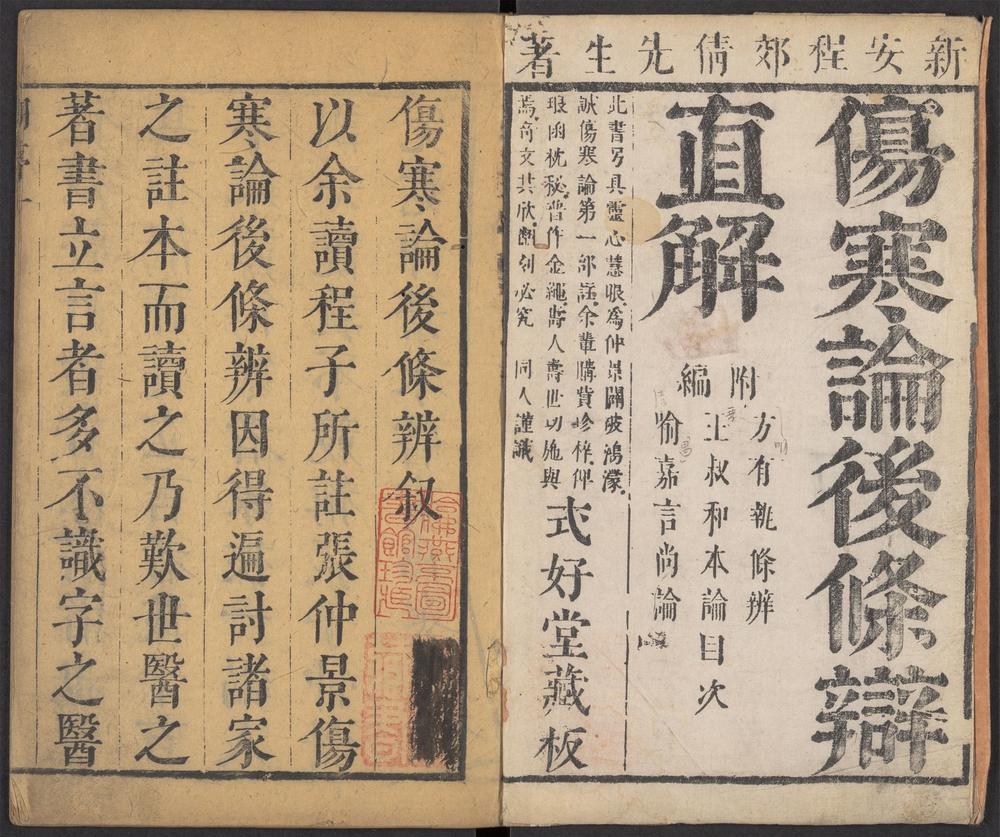 新安程郊倩先生著
傷寒論後條辯
直解
附編
方有執條辨
王叔和本論目次
喻嘉言尚論
此書另具靈心慧眼為仲景闢破鴻濛
誠傷寒論第一部註余輩購貲珍梓俾
琅函枕秘普作金繩壽人壽世功施與
焉奇文共欣翻刻必究 同人謹識
式好堂藏板
傷寒論後條辨叙
以余讀程子所註張仲景傷
寒論後條辨因得遍討諸家
之註本而讀之乃歎世醫之
著書立言者多不識字之醫